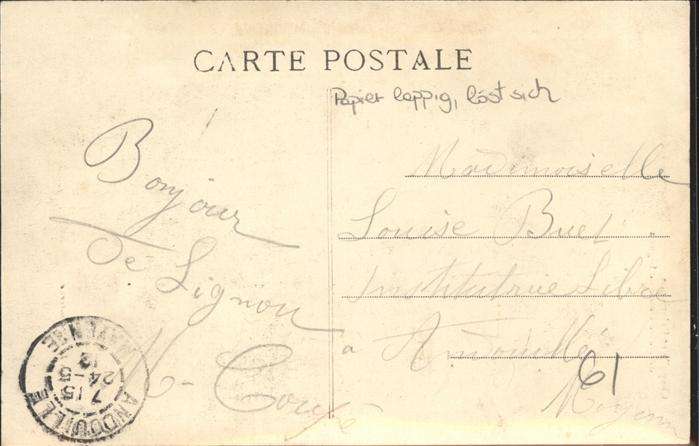 CARTE POSTALE
Papier lappig, löst sich
Bonjour
de Lignou
Coupé
Mademoiselle
Louise Buet
Institutrice Libre
à Andouillé
61
Mayenne
ANDOUILLÉ
7 15
24-5
12
MAYENNE